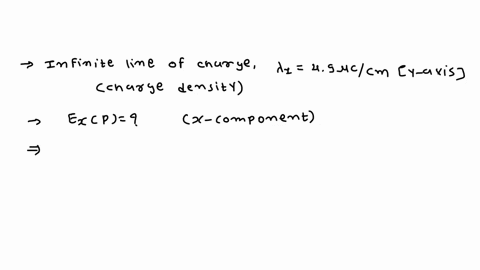 → Infinite line of charge, λ1 = 4.9 μc/cm [Y-axis]
(charge density)
→ Ex(P) = ? (x-component)
⇒